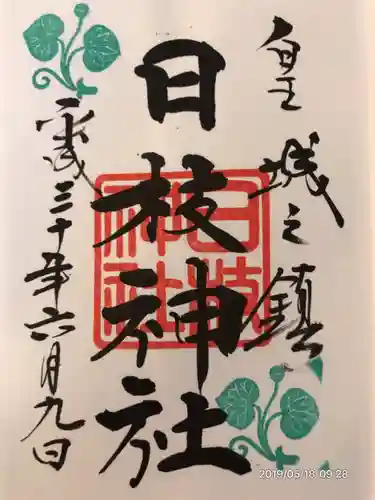 皇城之鎮
日枝神社
日枝神社
平成三十年六月九日
2019/05/18 09:28